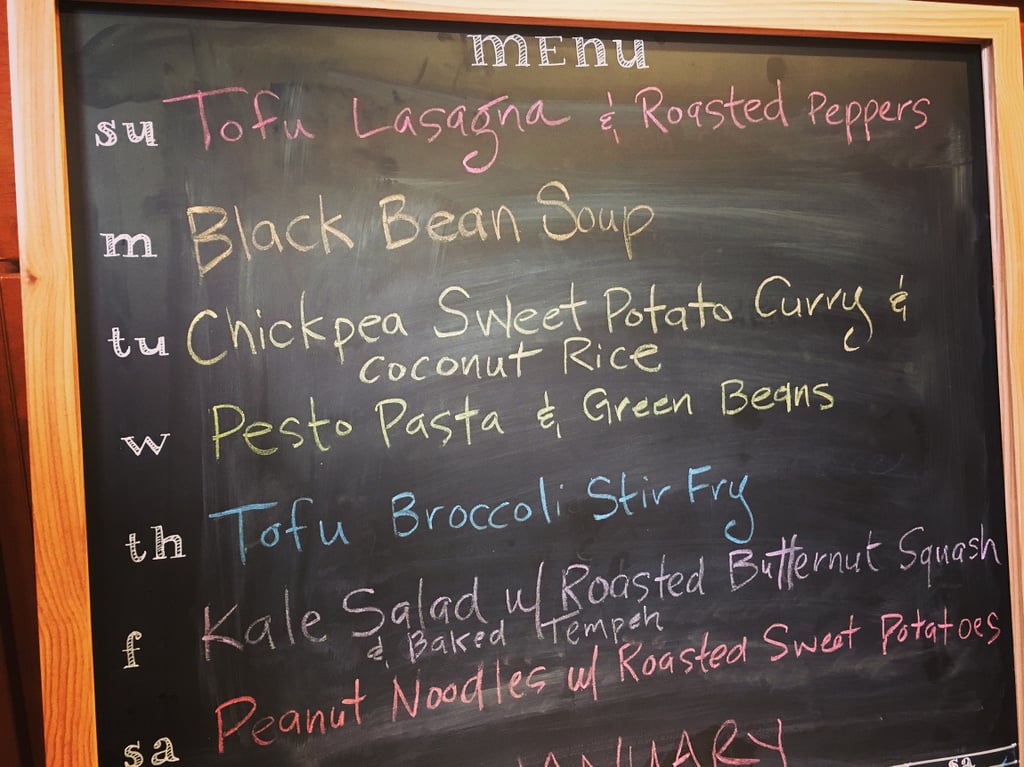 menu
su Tofu Lasagna & Roasted Peppers
m Black Bean Soup
tu Chickpea Sweet Potato Curry &
Coconut Rice
w Pesto Pasta & Green Beans
th Tofu Broccoli Stir Fry
f Kale Salad w/ Roasted Butternut Squash
& Baked Tempeh
sa Peanut Noodles w/ Roasted Sweet Potatoes
JANUARY
sa